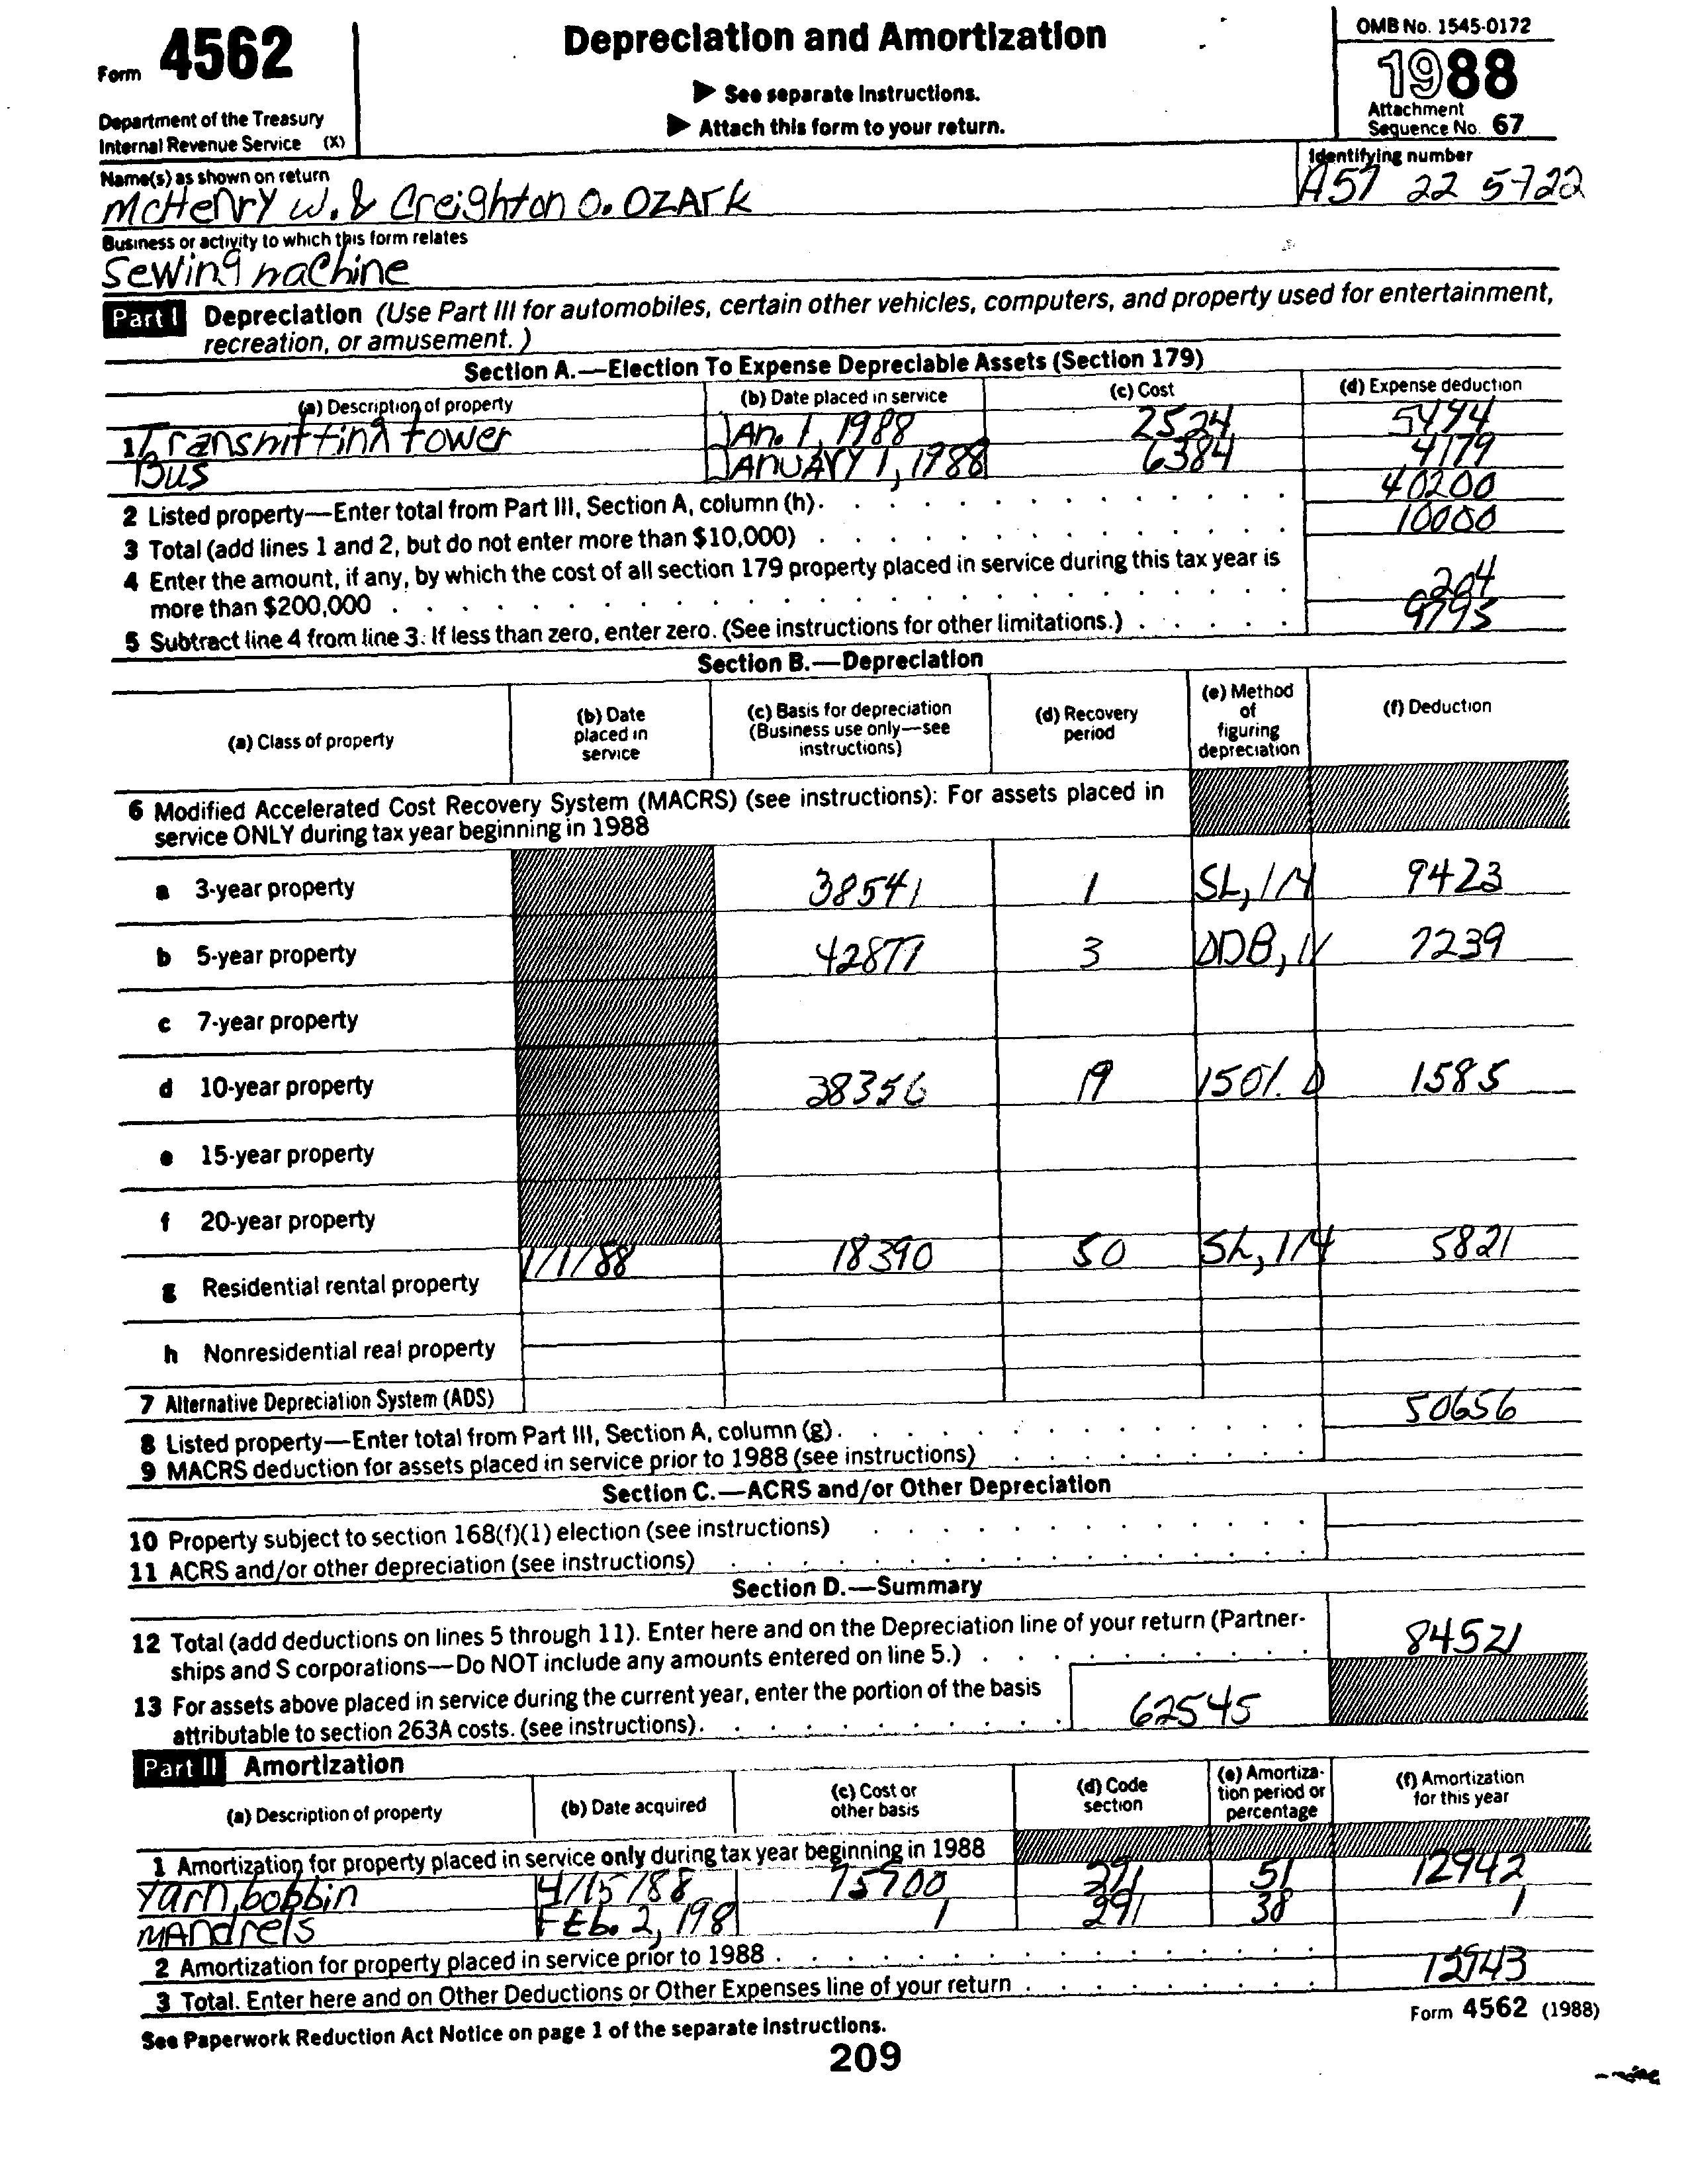 Form 4562
Department of the Treasury
Internal Revenue Service (X)
Depreciation and Amortization
▶ See separate Instructions.
▶ Attach this form to your return.
OMB No. 1545-0172
1988
Attachment
Sequence No. 67
Name(s) as shown on return
McHenry W. & Creighton O. Ozark
Identifying number
A57 22 5722
Business or activity to which this form relates
Sewing machine
Part I Depreciation (Use Part III for automobiles, certain other vehicles, computers, and property used for entertainment,
recreation, or amusement.)
Section A.—Election To Expense Depreciable Assets (Section 179)
(a) Description of property (b) Date placed in service (c) Cost (d) Expense deduction
1 Transmitting tower JAn. 1, 1988 2524 5494
Bus JANUARY 1, 1988 6384 4179
2 Listed property—Enter total from Part III, Section A, column (h). 40200
3 Total (add lines 1 and 2, but do not enter more than $10,000) 10000
4 Enter the amount, if any, by which the cost of all section 179 property placed in service during this tax year is
more than $200,000 204
5 Subtract line 4 from line 3. If less than zero, enter zero. (See instructions for other limitations.) 9795
Section B.—Depreciation
(a) Class of property
(b) Date
placed in
service
(c) Basis for depreciation
(Business use only—see
instructions)
(d) Recovery
period
(e) Method
of
figuring
depreciation
(f) Deduction
6 Modified Accelerated Cost Recovery System (MACRS) (see instructions): For assets placed in
service ONLY during tax year beginning in 1988
a 3-year property 38541 1 SL, 1/4 9423
b 5-year property 42877 3 DDB, 1/ 7239
c 7-year property
d 10-year property 38356 19 150% D 1585
e 15-year property
f 20-year property
1/1/88 18390 50 SL, 1/4 5821
g Residential rental property
h Nonresidential real property
7 Alternative Depreciation System (ADS)
8 Listed property—Enter total from Part III, Section A, column (g). 50656
9 MACRS deduction for assets placed in service prior to 1988 (see instructions)
Section C.—ACRS and/or Other Depreciation
10 Property subject to section 168(f)(1) election (see instructions)
11 ACRS and/or other depreciation (see instructions)
Section D.—Summary
12 Total (add deductions on lines 5 through 11). Enter here and on the Depreciation line of your return (Partner-
ships and S corporations—Do NOT include any amounts entered on line 5.) 84521
13 For assets above placed in service during the current year, enter the portion of the basis
attributable to section 263A costs. (see instructions). 62545
Part II Amortization
(a) Description of property
(b) Date acquired
(c) Cost or
other basis
(d) Code
section
(e) Amortiza-
tion period or
percentage
(f) Amortization
for this year
1 Amortization for property placed in service only during tax year beginning in 1988
Yarn, bobbin 4/15/88 75900 291 51 12942
MAndrels FEb. 2, 198 1 291 38 1
2 Amortization for property placed in service prior to 1988
3 Total. Enter here and on Other Deductions or Other Expenses line of your return 12943
See Paperwork Reduction Act Notice on page 1 of the separate Instructions.
Form 4562 (1988)
209